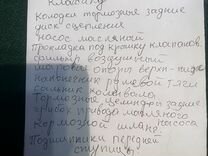 Колодки тормозные задние
диск сцепления
насос масляной
Прокладка под крышку клапанов
фильтр воздушный
шаровые опоры верхн-нижн
наконечник рулевой тяги
сальник коленвала
Тормозные цилиндры задние
привода масляного
насоса
Тормозной шланг
Подшипники передней
ступицы